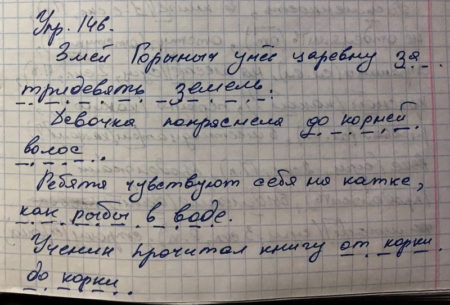 Упр. 146.
Змей Горыныч унёс царевну за
тридевять земель.
Девочка покраснела до корней
волос.
Ребята чувствуют себя на катке,
как рыбы в воде.
Ученик прочитал книгу от корки
до корки.